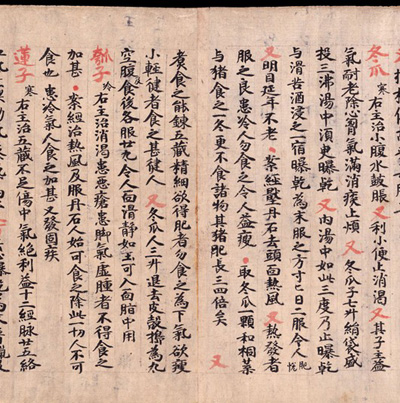 冬瓜寒 右主治小腹水鼓脹 又 利小便止消渴 又 其子主益
氣耐老除心胷氣滿消痰止煩 又 冬瓜子七升絹袋盛
投三沸湯中須臾曝乾 又 內湯中如此三度乃止曝乾
与清苦酒浸之一宿曝乾為末服之方寸匕日二服令人肥悅
又 明目延年不老 案經壓丹石去頭面熱風 又 熱發者
服之良患冷人勿食之令人益瘦 取冬瓜一顆和桐葉
与猪食之一冬更不食諸物其猪肥長三四倍矣 又
煮食之能鍊五藏精細欲得肥者勿食之為下氣欲瘦
小輕健者食之甚健人 又 冬瓜人三升退去皮殼擣為丸
空腹及食後各服廿丸令人面滑靜如玉可入面脂中用
瓠子冷 右主治消渴患惡瘡患脚氣虛腫者不得食之
加甚 案經治熱風及服丹石人始可食之除此一切人不可
食也 患冷氣人食之加甚又發固疾
蓮子寒 右主治五藏不足傷中氣絕利益十二經脉廿五絡